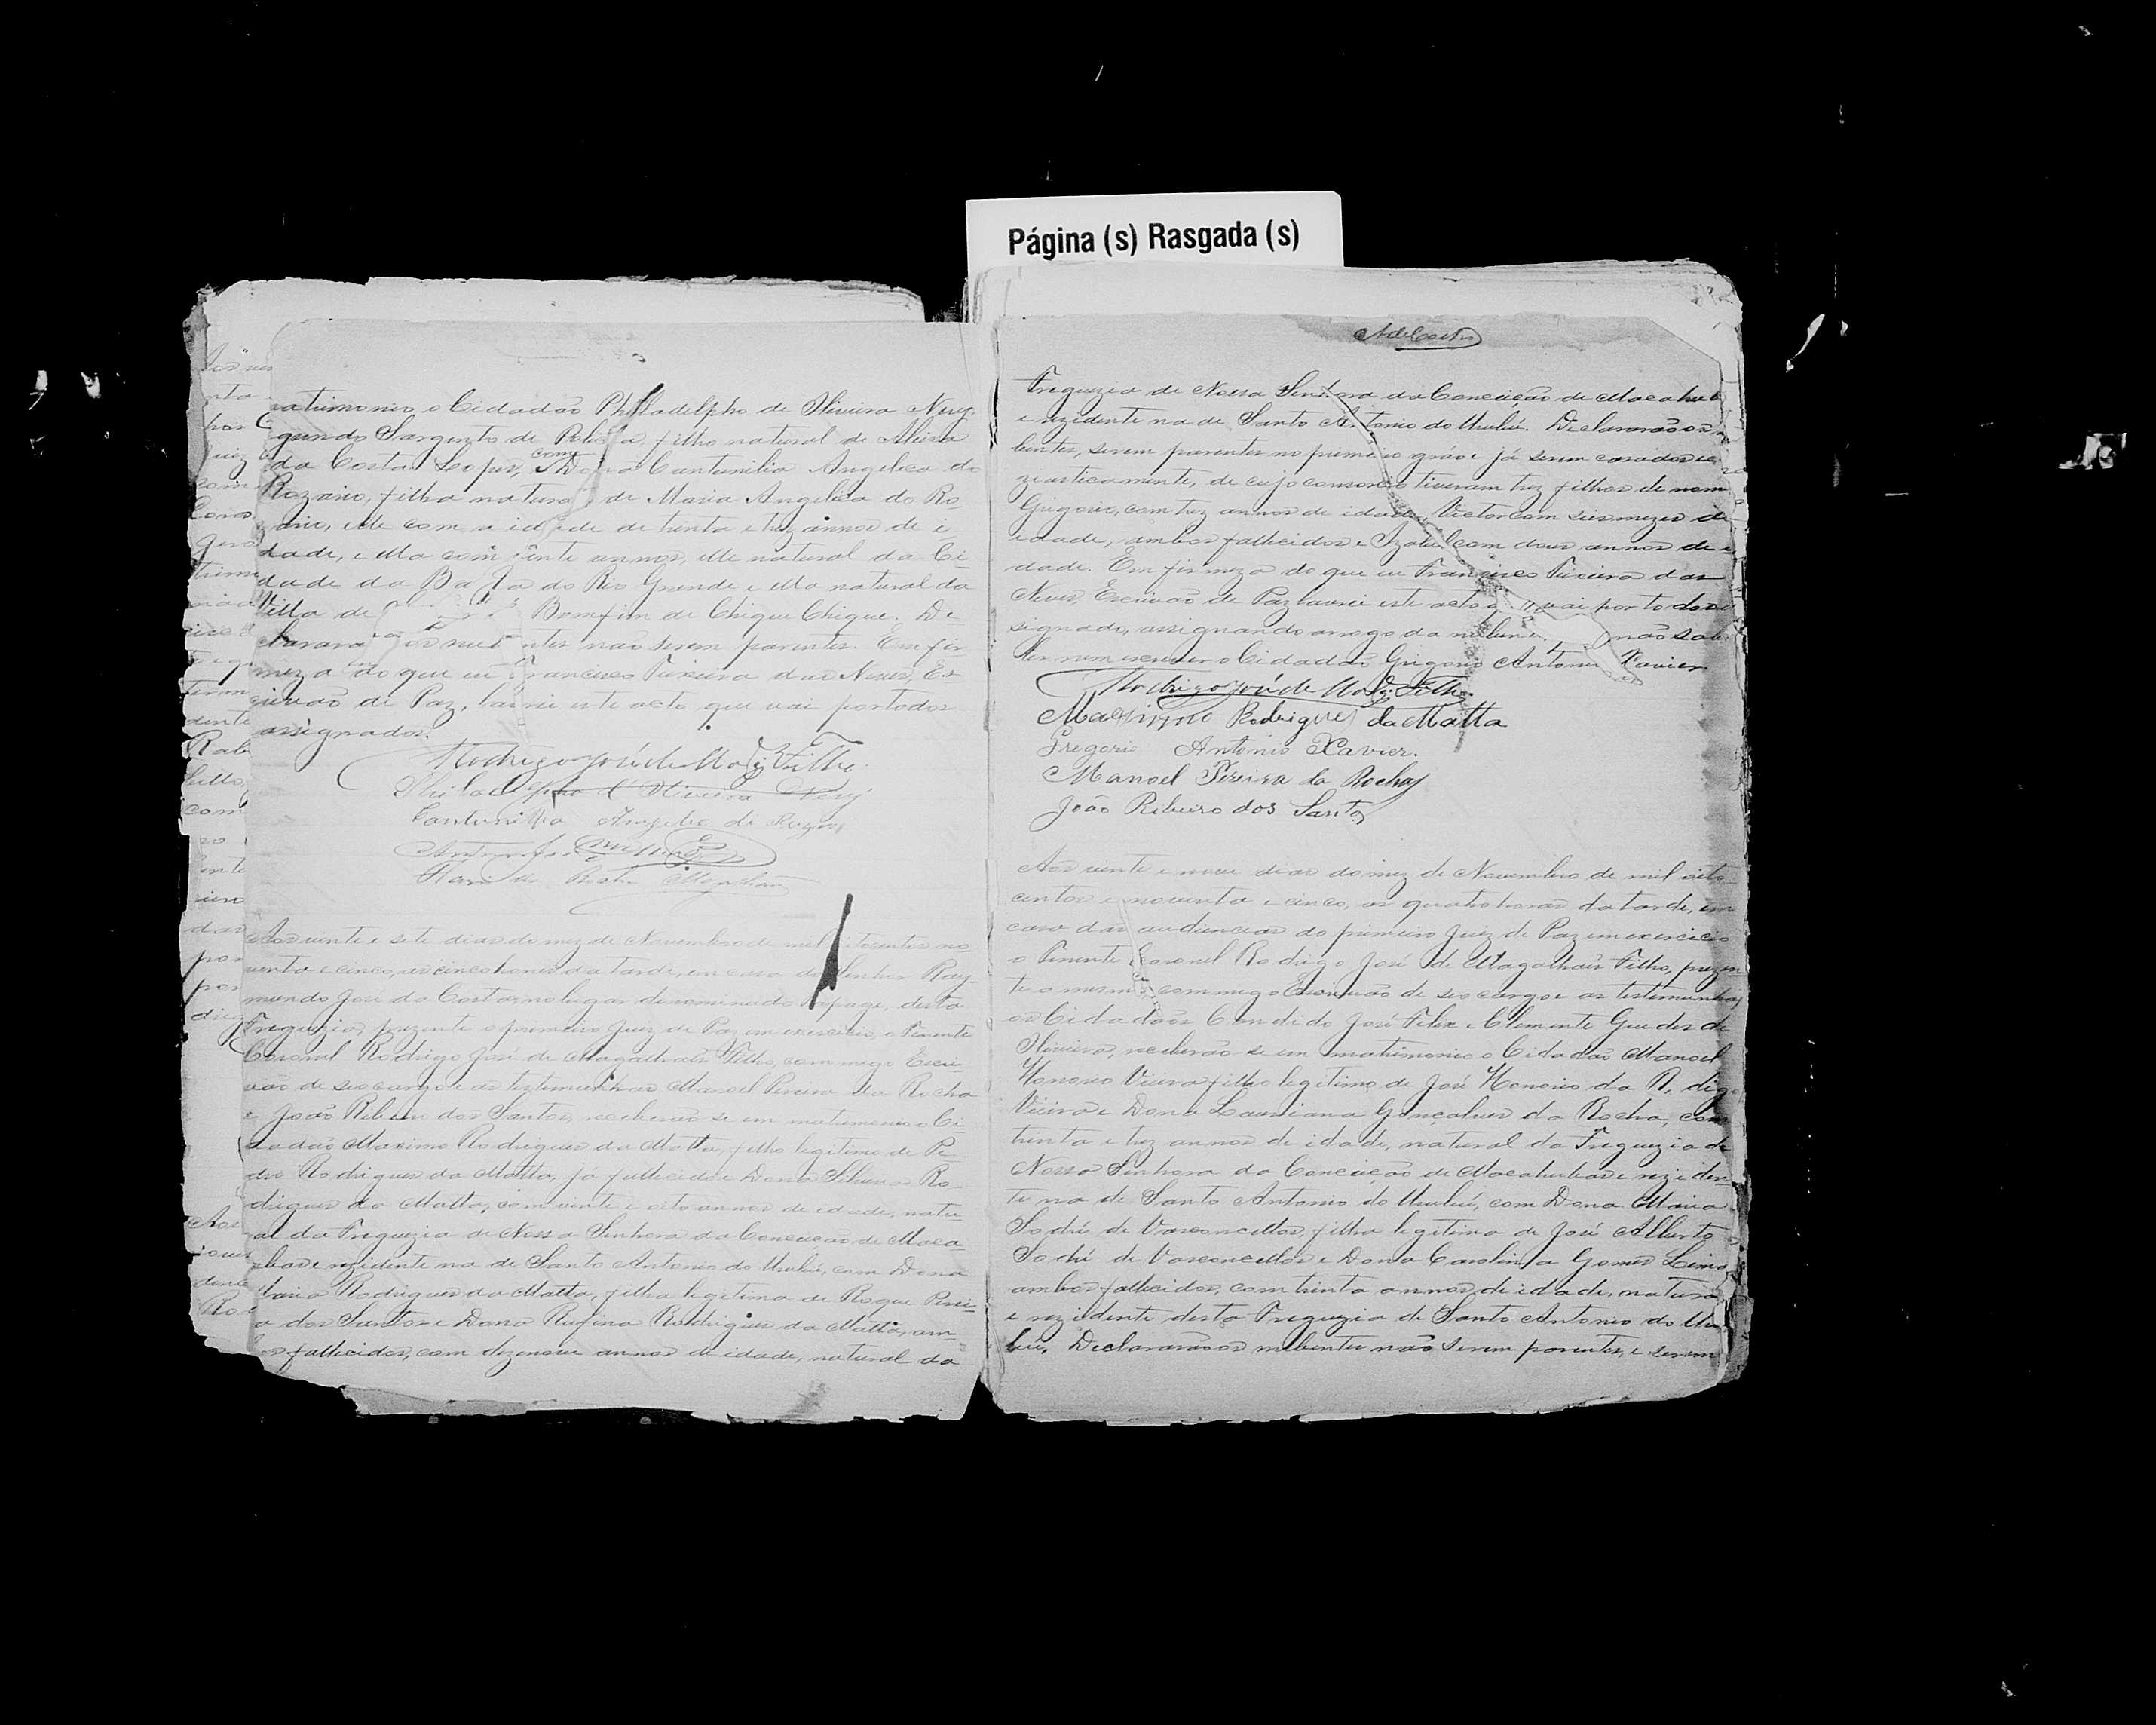 Página (s) Rasgada (s)
atrimonio o Cidadão Philadelpho de Oliveira Nery,
gundo Sargento de Policia, filho natural de Alxira
da Costa Lopes, com Dona Cantunilia Angelica do
Rozario, filha natural de Maria Angelica do Ro-
zario, elle com a idade de trinta e trez annos de i-
dade, e ella com vinte annos, elle natural da Ci-
dade da Barra do Rio Grande e ella natural da
Villa de Bomfim de Chique Chique. De-
clararão os nubentes não serem parentes. Em fir
meza do que eu Francisco Teixeira das Neves, Es
crivão de Paz, lavrei este acto que vai por todos
assignados.
Rodrigo José de Mag. Filho.
Philadelpho d'Oliveira Nery
Cantunilia Angelica do Rozario
Aos vinte e sete dias do mez de Novembro de mil oitocentos no-
venta e cinco, as cinco horas da tarde, em casa do Senhor Ray-
mundo José da Costa, no lugar denominado desta
Freguezia, prezente o primeiro Juiz de Paz em exercicio, o Tenente
Coronel Rodrigo José de Magalhães Filho, commigo Escri
vão de seo cargo e as testemunhas Manoel Pereira da Rocha
e João Ribeiro dos Santos, receberão se em matrimonio o Ci
dadão Maximo Rodrigues da Matta, filho legitimo de Pe
dro Rodrigues da Matta, já fallecido e Dona Silveria Ro
drigues da Matta, com vinte e oito annos de idade, natu
al da Freguezia de Nossa Senhora da Conceição de Maca-
ubas e rezidente na de Santo Antonio do Urubú, com Dona
Maria Rodrigues da Matta, filha legitima de Roque Perei-
a dos Santos e Dona Rufina Rodrigues da Matta, am-
os fallecidos, com dezenove annos de idade, natural da
A de Castro
Freguezia de Nossa Senhora da Conceição de Macahub
e rezidente na de Santo Antonio do Urubú. Declararão os n
bentes, serem parentes no primeiro gráo e já serem casados ec
ziasticamente, de cujo consorcio tiveram trez filhos de nom
Grigorio, com trez annos de idade, Victor com seis mezes de
idade, ambos fallecidos e Izabel com dous annos de i-
dade. Em firmeza do que eu Francisco Teixeira das
Neves, Escrivão de Paz lavrei este acto q. vai por todos
signado, assignando a rogo da nubente não sab
ler nem escrever o Cidadão Grigorio Antonio Xavier
Rodrigo José de Mag. Filho.
Maximo Rodrigues da Matta
Gregorio Antonio Xavier.
Manoel Pereira da Rocha
João Ribeiro dos Santos
Aos vinte e nove dias do mez de Novembro de mil oito
centos e noventa e cinco, as quatro horas da tarde, em
casa das audiencias do primeiro Juiz de Paz em exercicio
o Tenente Coronel Rodrigo José de Magalhães Filho, prezen
te o mesmo commigo Escrivão de seo cargo e as testemunhas
os Cidadãos Candido José Felix e Clemente Guedes de
Oliveira, receberão se em matrimonio o Cidadão Manoel
Honorio Vieira filho legitimo de José Honorio da R. digo
Vieira e Dona Lauriana Gonçalves da Rocha, com
trinta e trez annos de idade, natural da Freguezia de
Nossa Senhora da Conceição de Macahubas e reziden-
te na de Santo Antonio do Urubú, com Dona Maria
Sodré de Vasconcellos, filha legitima de José Alberto
Sodré de Vasconcellos e Dona Carolina Gomes Lima
ambos fallecidos, com trinta annos de idade, natural
e rezidente desta Freguezia de Santo Antonio do Uru-
bú. Declararão os nubentes não serem parentes, e serem